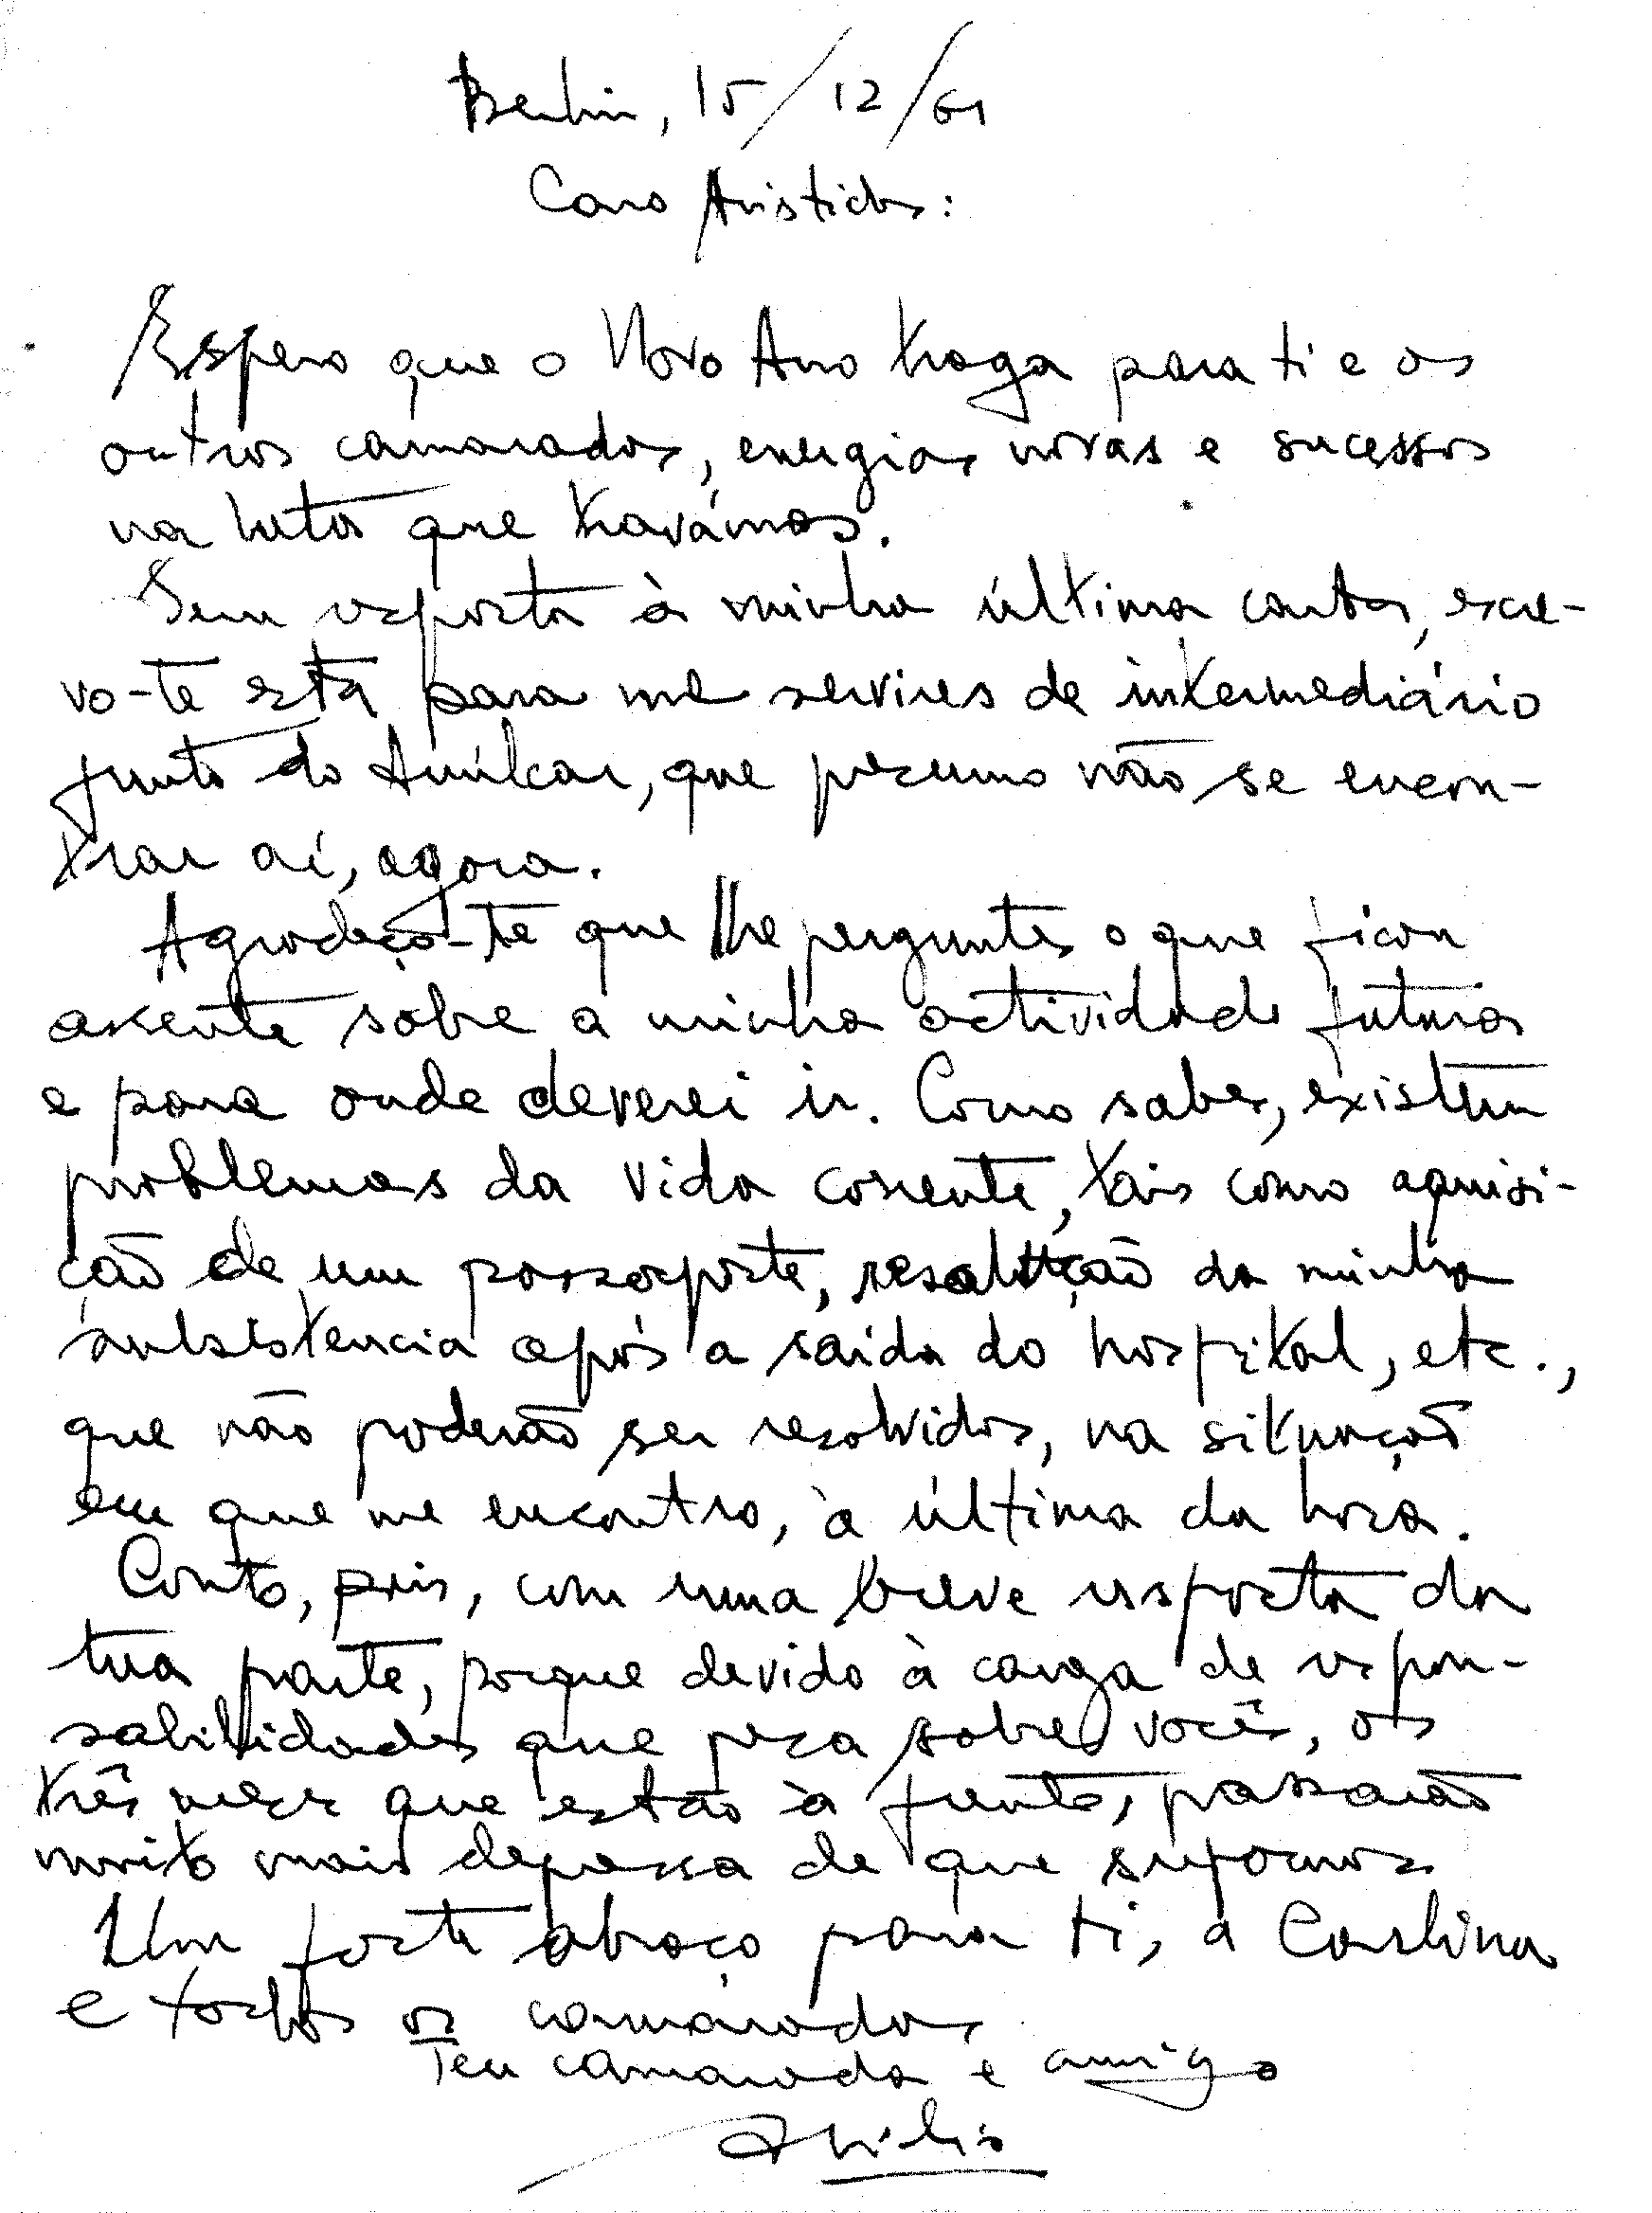 Berlin, 15/12/61
Caro Aristides:
Espero que o Novo Ano traga para ti e os
outros camaradas, energias novas e sucessos
na luta que travámos.
Sem resposta à minha última carta, escre-
vo-te esta para me servires de intermediário
junto do Amílcar, que presumo não se encon-
trar aí, agora.
Agradeço-te que lhe perguntes o que ficou
assente sobre a minha actividade futura
e para onde deverei ir. Como sabes, existem
problemas da vida corrente, tais como aquisi-
ção de um passaporte, resolução da minha
subsistência após a saída do hospital, etc.,
que não poderão ser resolvidos, na situação
em que me encontro, à última da hora.
Conto, pois, com uma breve resposta da
tua parte, porque devido à carga de respon-
sabilidades que pesa sobre vocês, os
três meses que estão à frente, passarão
muito mais depressa de que supomos
Um forte abraço para ti, a Carlina
e todos os camaradas
Teu camarada e amigo